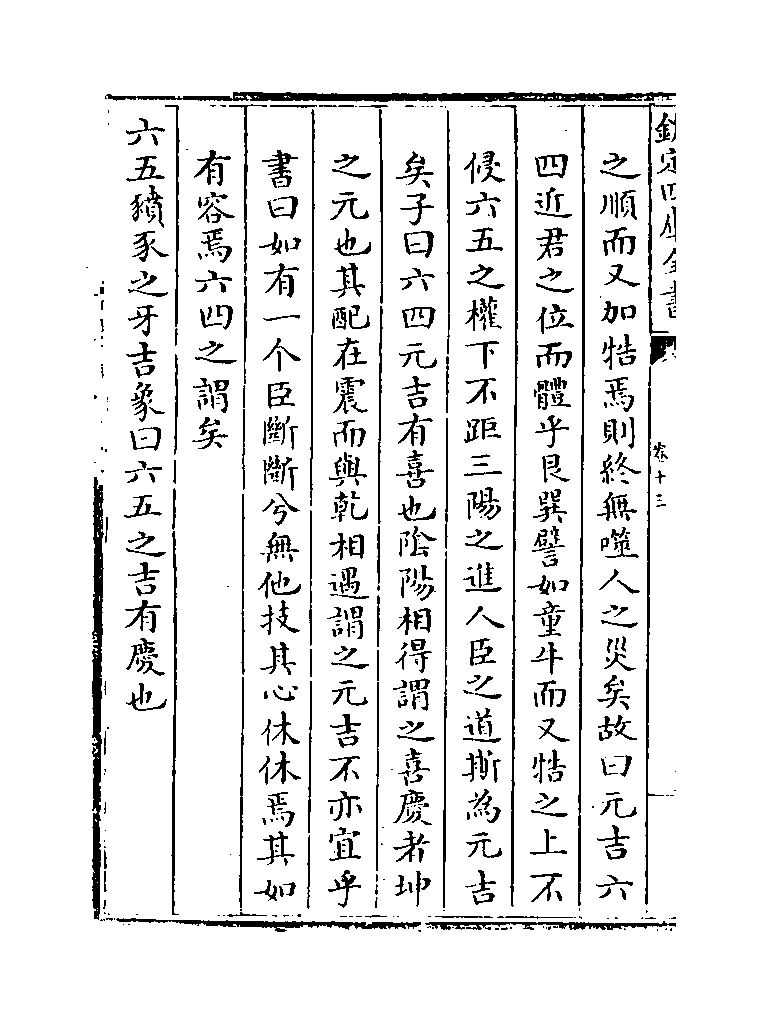 欽定四庫全書
卷十三
之順而又加牿焉則終無噬人之災矣故曰元吉六
四近君之位而體乎艮巽譬如童牛而又牿之上不
侵六五之權下不距三陽之進人臣之道斯為元吉
矣子曰六四元吉有喜也陰陽相得謂之喜慶者坤
之元也其配在震而與乾相遇謂之元吉不亦宜乎
書曰如有一个臣斷斷兮無他技其心休休焉其如
有容焉六四之謂矣
六五豶豕之牙吉象曰六五之吉有慶也